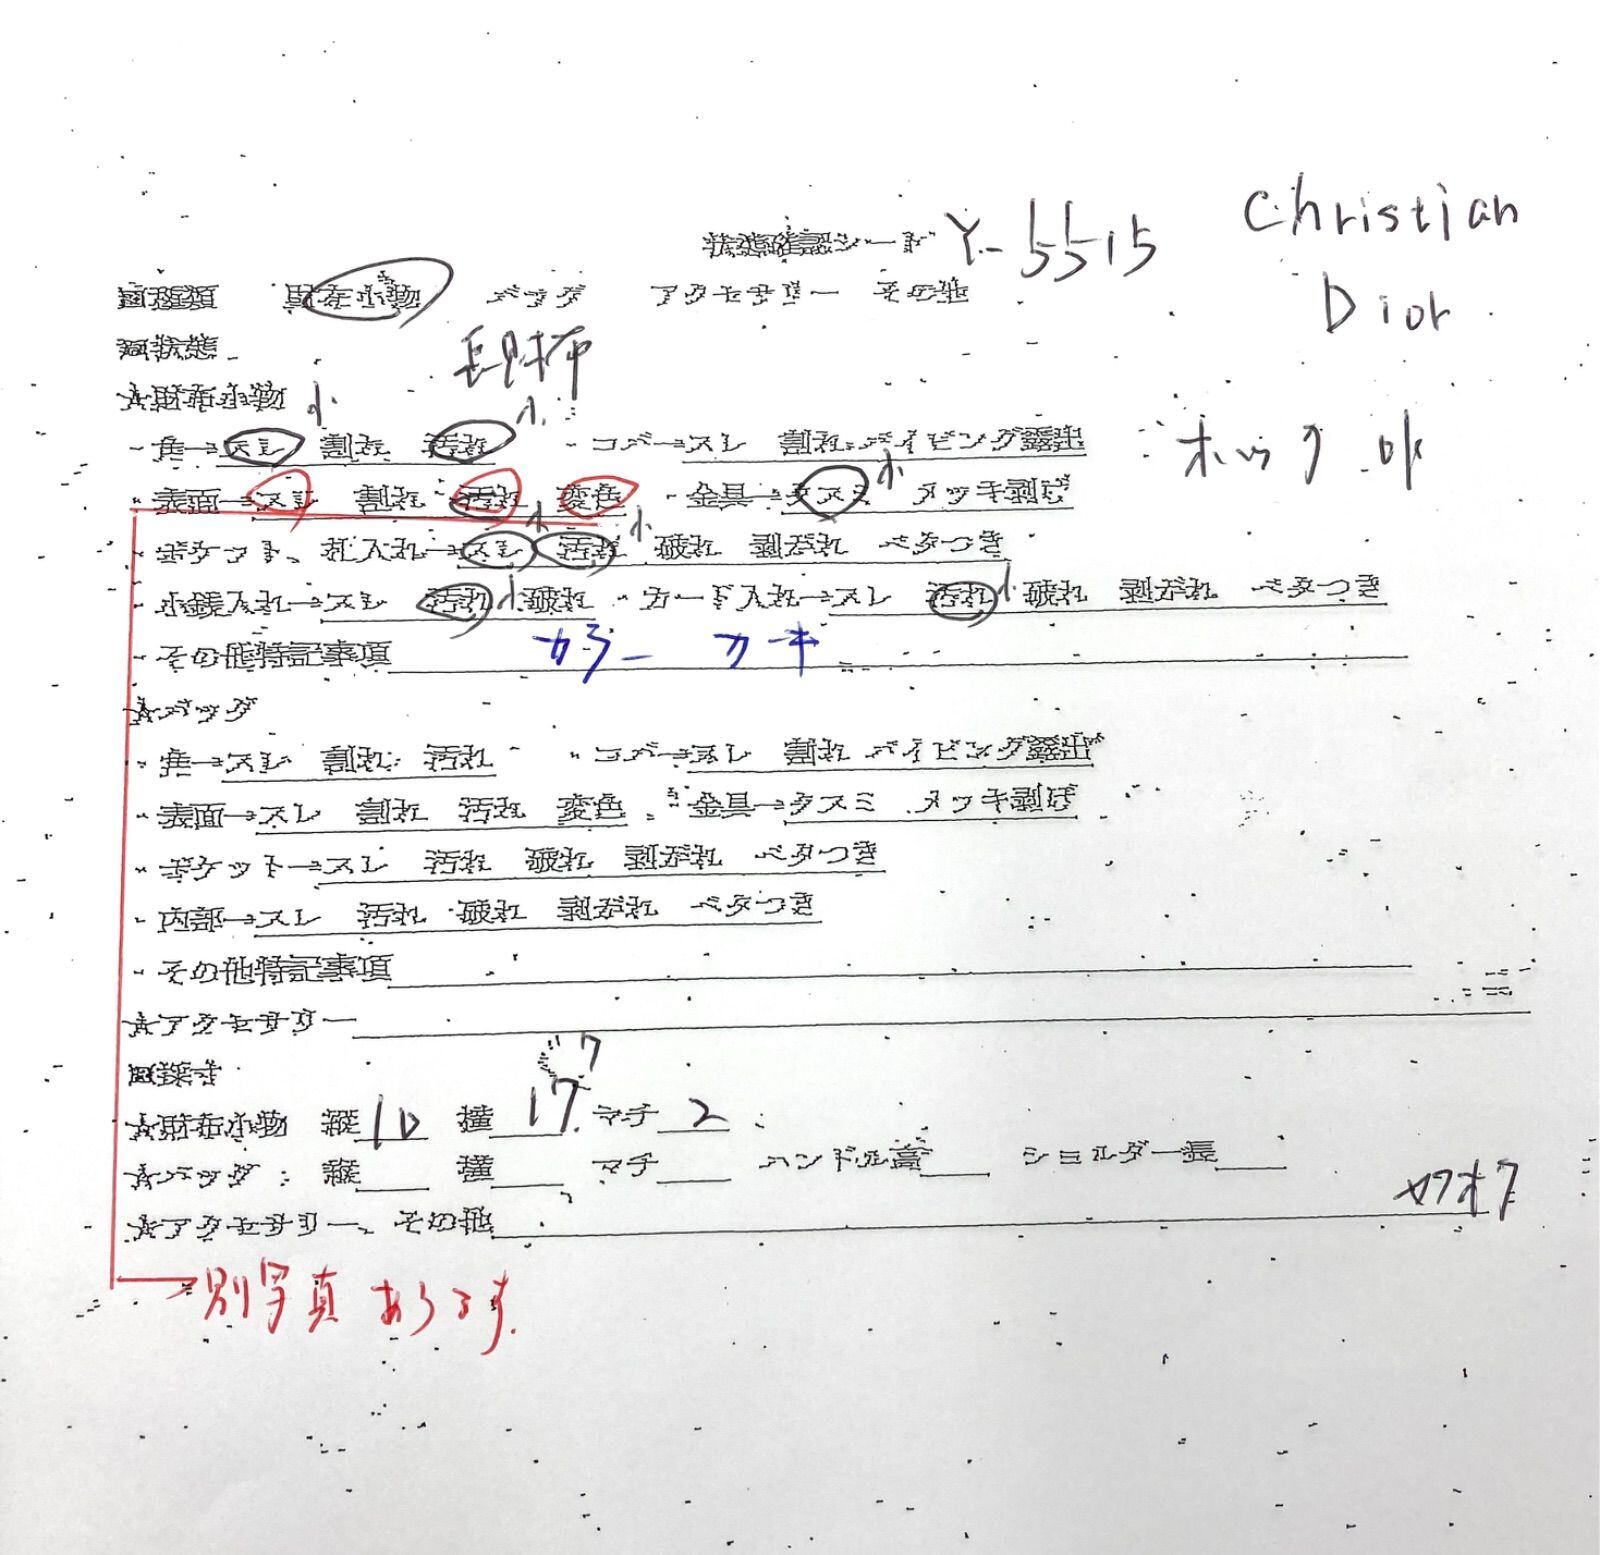 状態確認シート Y-5515 Christian Dior
□種類 財布小物 バッグ アクセサリー その他
□状態 長財布
☆財布小物
・角→スレ 小 割れ 汚れ 小 ・コバ→スレ 割れ パイピング露出 ホック ok
・表面→スレ 割れ 汚れ 変色 ・金具→クスミ 小 メッキ剥げ
・ポケット、札入れ→スレ 小 汚れ 小 破れ 剥がれ ベタつき
・小銭入れ→スレ 汚れ 小 破れ ・カード入れ→スレ 汚れ 小 破れ 剥がれ ベタつき
・その他特記事項 カラー カーキ
☆バッグ
・角→スレ 割れ 汚れ ・コバ→スレ 割れ パイピング露出
・表面→スレ 割れ 汚れ 変色 ・金具→クスミ メッキ剥げ
・ポケット→スレ 汚れ 破れ 剥がれ ベタつき
・内部→スレ 汚れ 破れ 剥がれ ベタつき
・その他特記事項
☆アクセサリー
□採寸
☆財布小物 縦 10 横 17 マチ 2
☆バッグ 縦 横 マチ ハンドル高 ショルダー長
☆アクセサリー、その他
別写真あります